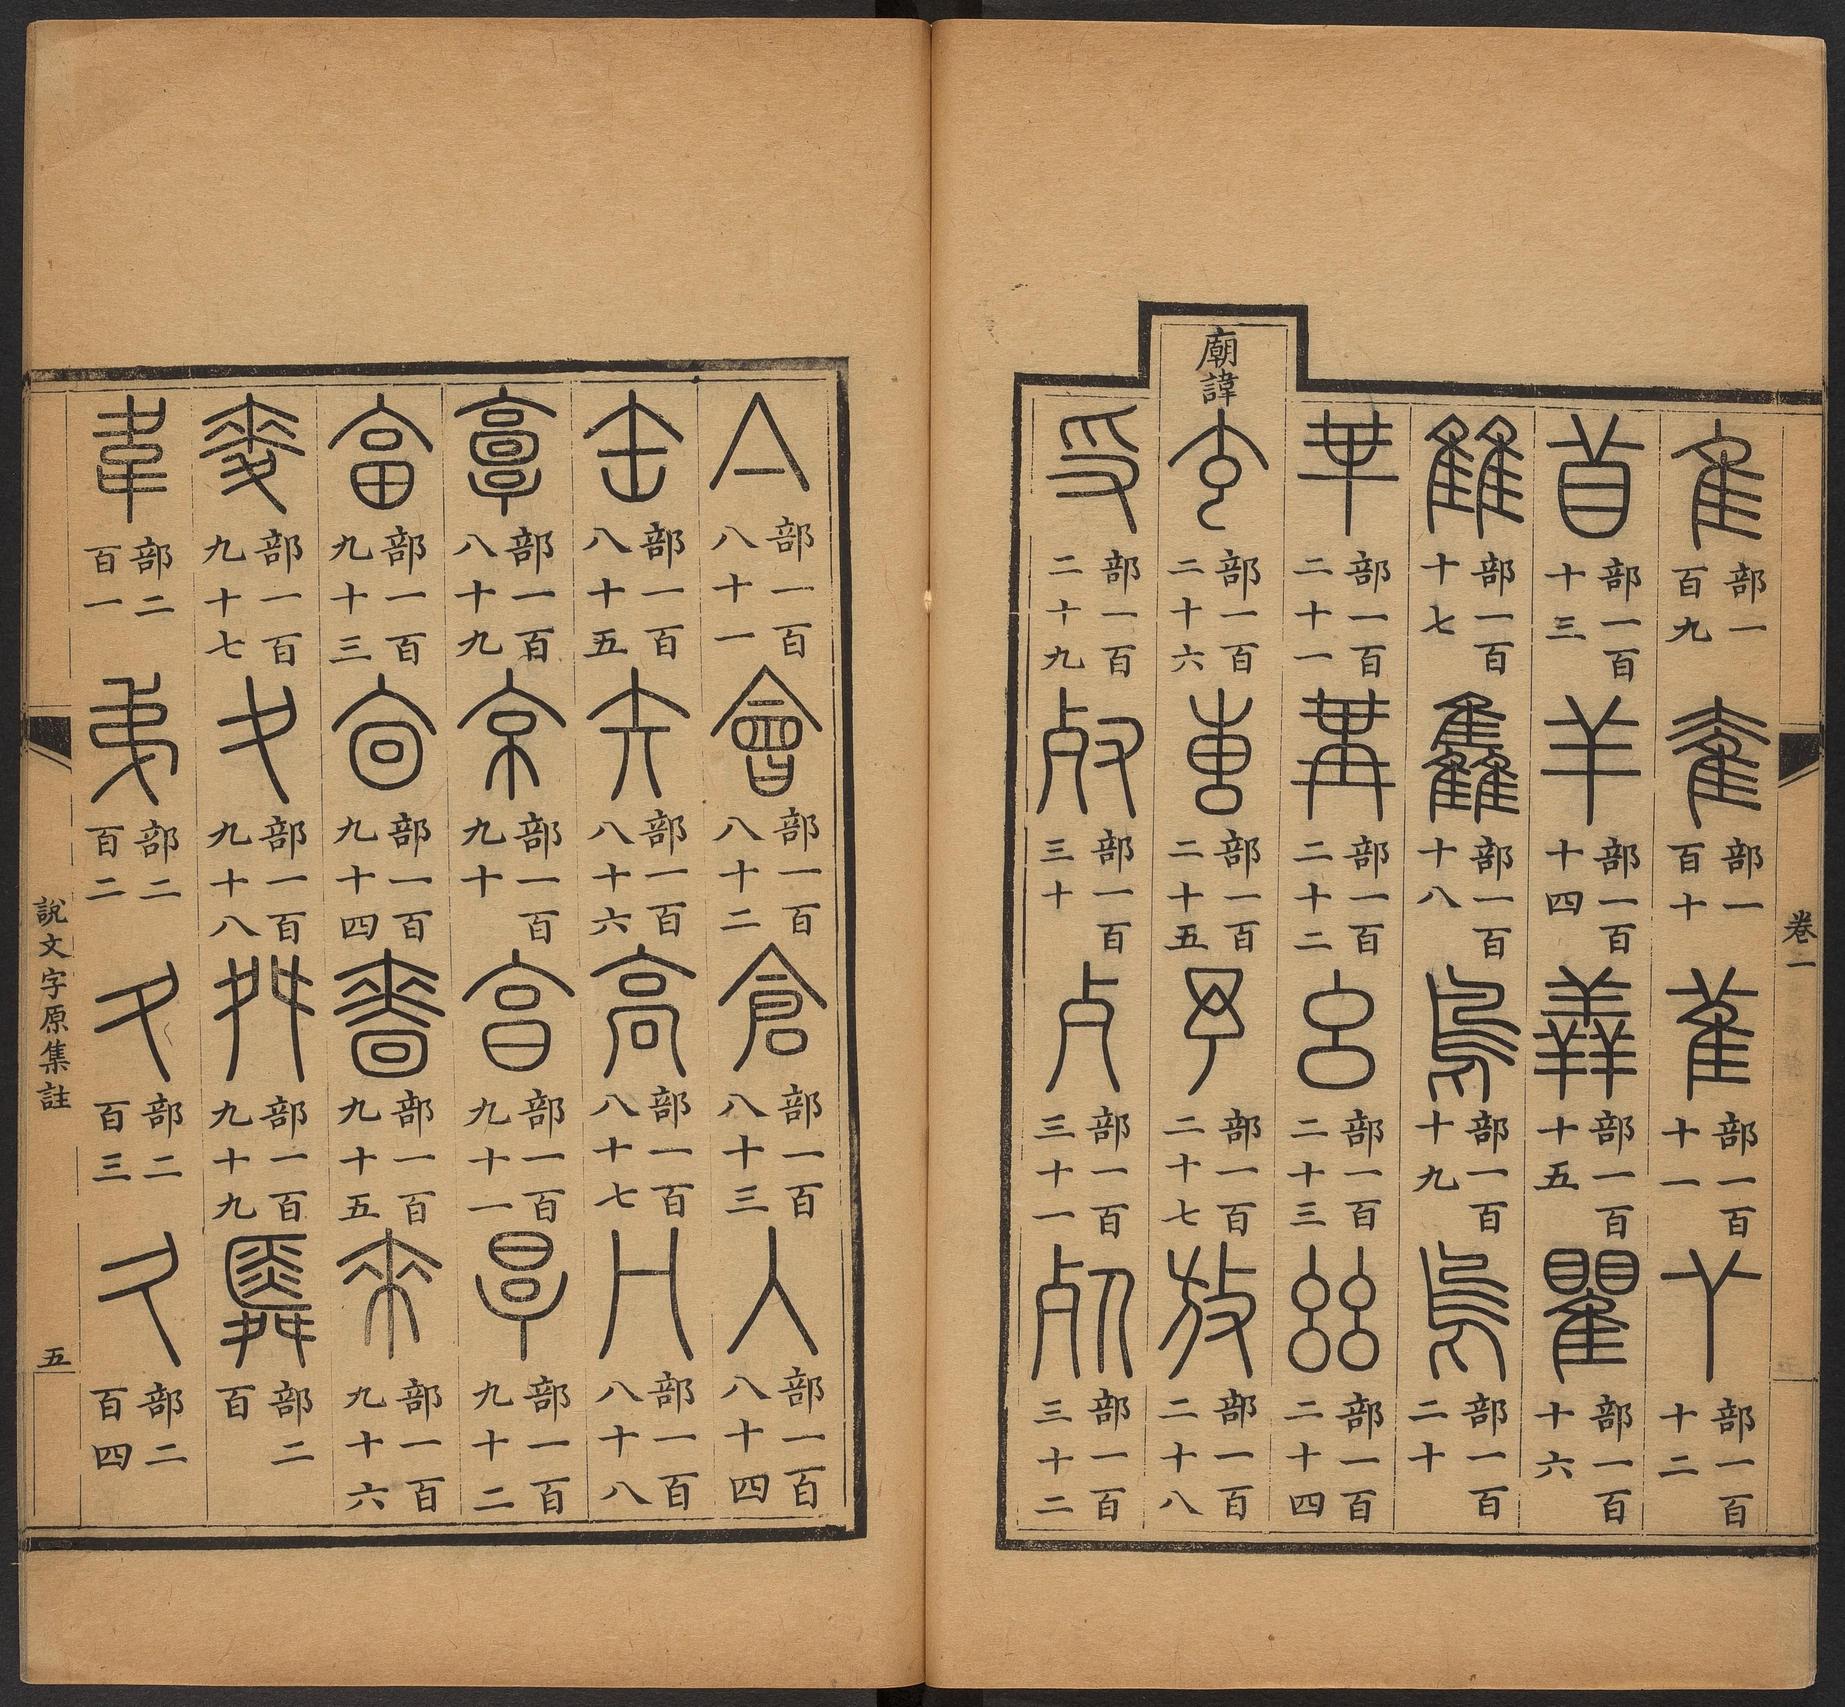 卷一
隹部一百九 奞部一百十 雈部一百十一 𦫳部一百十二
𥄕部一百十三 羊部一百十四 羴部一百十五 瞿部一百十六
雔部一百十七 雥部一百十八 鳥部一百十九 烏部一百二十
𠦒部一百二十一 冓部一百二十二 幺部一百二十三 𢆶部一百二十四
廟諱
玄部一百二十六 叀部一百二十五 予部一百二十七 放部一百二十八
𠬪部一百二十九 𣦼部一百三十 歺部一百三十一 死部一百三十二
亼部一百八十一 會部一百八十二 倉部一百八十三 入部一百八十四
缶部一百八十五 矢部一百八十六 高部一百八十七 冂部一百八十八
𩫖部一百八十九 京部一百九十 亯部一百九十一 㫗部一百九十二
畗部一百九十三 㐭部一百九十四 嗇部一百九十五 來部一百九十六
麥部一百九十七 夊部一百九十八 舛部一百九十九 䑞部二百
韋部二百一 弟部二百二 夂部二百三 久部二百四
說文字原集註
五